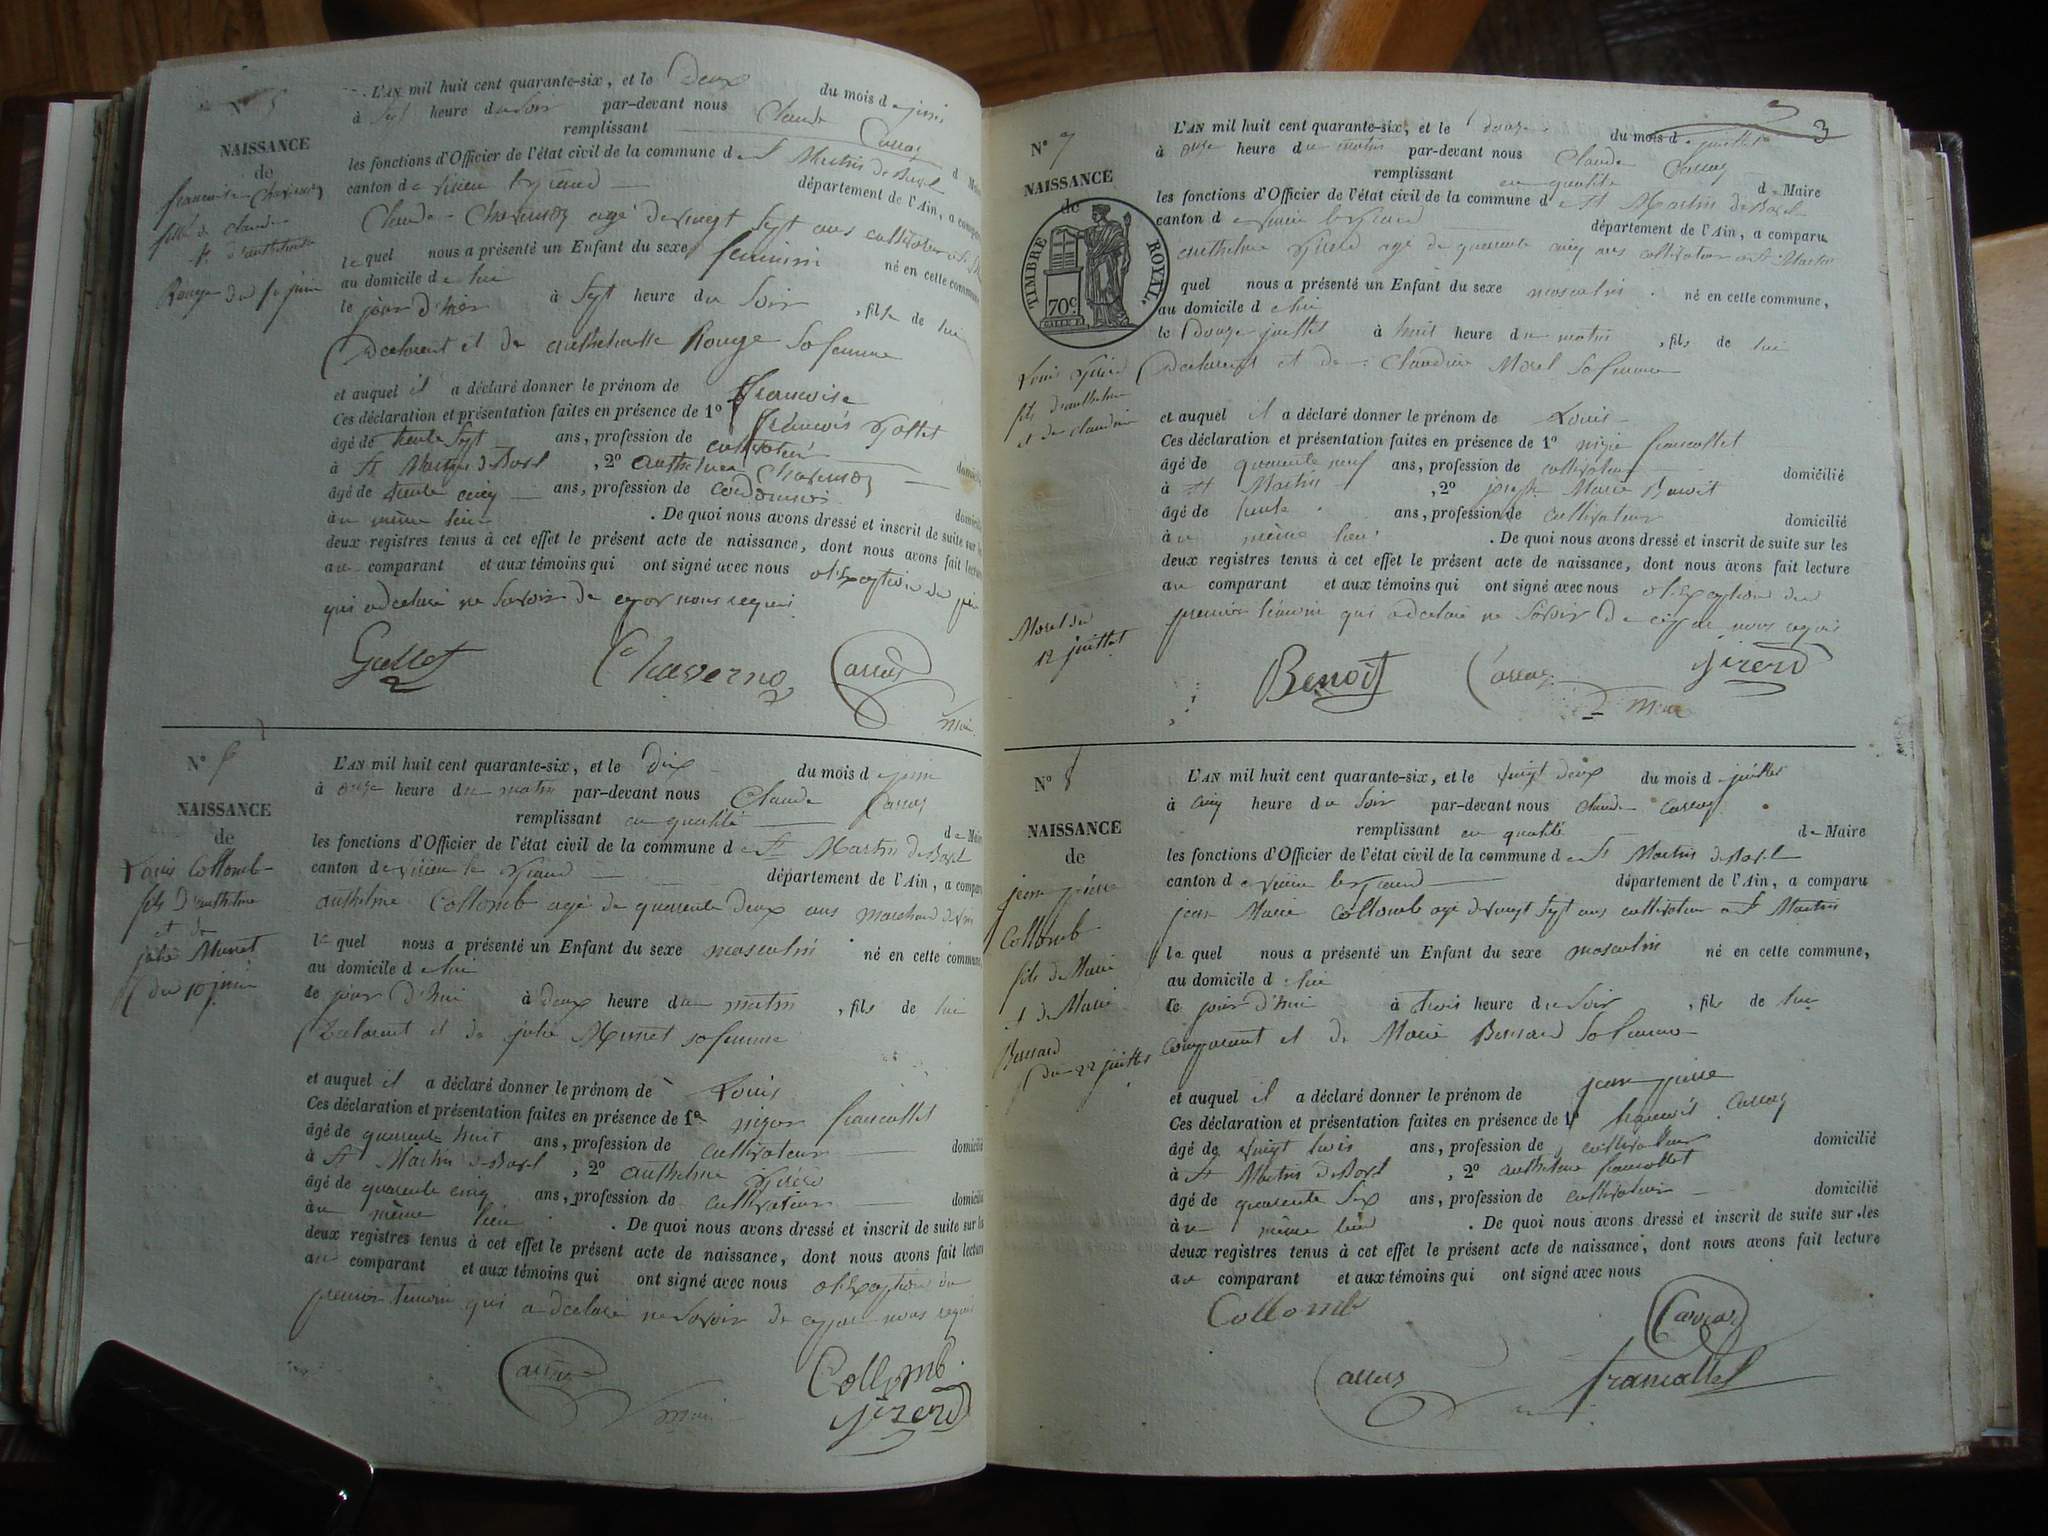 N° 5
NAISSANCE
de
françoise Chavernoz
fille de claude
et d'anthelmette
Rouge du 1er juin
L'AN mil huit cent quarante-six, et le deux du mois de juin
à Sept heure du Soir par-devant nous Claude Carraz
remplissant d Maire
les fonctions d'Officier de l'état civil de la commune de St Martin de Bavel
canton de virieu le grand département de l'Ain, a comparu
Claude Chavernoz agé de vingt Sept ans cultivateur
le quel nous a présenté un Enfant du sexe feminin né en cette commune
au domicile de lui
le jour d'hier à Sept heure du Soir, fille de lui
Declarant et de anthelmette Rouge Sa femme
et auquel il a déclaré donner le prénom de françoise
Ces déclaration et présentation faites en présence de 1° françois Gollet
âgé de trente Sept ans, profession de cultivateur
à St Martin de Bavel, 2° anthelme Chavernoz
âgé de trente cinq ans, profession de cordonnier
au même lieu. De quoi nous avons dressé et inscrit de suite sur les
deux registres tenus à cet effet le présent acte de naissance, dont nous avons fait lecture
au comparant et aux témoins qui ont signé avec nous a l'Exception du
qui a declaré ne Savoir de ce par nous requi
Gollet Chavernoz Carraz
N° 6
NAISSANCE
de
Louis Collomb
fils d'anthelme
et de
julie Munet
du 10 juin
L'AN mil huit cent quarante-six, et le dix du mois de juin
à onze heure du matin par-devant nous Claude Carraz
remplissant en qualité de Maire
les fonctions d'Officier de l'état civil de la commune de St Martin de Bavel
canton de virieu le grand département de l'Ain, a comparu
anthelme Collomb agé de quarente deux ans marchand de vin
le quel nous a présenté un Enfant du sexe masculin né en cette commune,
au domicile de lui
le jour d'hui à deux heure du matin, fils de lui
Declarant et de julie Munet sa femme
et auquel il a déclaré donner le prénom de Louis
Ces déclaration et présentation faites en présence de 1° francollet
âgé de quarente huit ans, profession de cultivateur domicilié
à St Martin de Bavel, 2° anthelme girerd
âgé de quarente cinq ans, profession de cultivateur domicilié
au même lieu. De quoi nous avons dressé et inscrit de suite sur les
deux registres tenus à cet effet le présent acte de naissance, dont nous avons fait lecture
au comparant et aux témoins qui ont signé avec nous a l'Exception du
premier temoin qui a declaré ne Savoir de ce par nous requi
Carraz Collomb
girerd
3
N° 7
NAISSANCE
de
TIMBRE ROYAL.
70c.
Louis girerd
fils d'anthelme
et de claudine
Morel du
12 juillet
L'AN mil huit cent quarante-six, et le douze du mois de juillet
à onze heure du matin par-devant nous Claude Carraz
remplissant en qualité de Maire
les fonctions d'Officier de l'état civil de la commune de St Martin de Bavel
canton de virieu le grand département de l'Ain, a comparu
anthelme girerd agé de quarente cinq ans cultivateur a St Martin
quel nous a présenté un Enfant du sexe masculin né en cette commune,
au domicile de lui
le Douze juillet à huit heure du matin, fils de lui
Declarant et de Claudine Morel Sa femme
et auquel il a déclaré donner le prénom de Louis
Ces déclaration et présentation faites en présence de 1° francollet
âgé de quarente neuf ans, profession de cultivateur domicilié
à St Martin, 2° joseph Marie Benoit
âgé de trente ans, profession de cultivateur domicilié
au même lieu. De quoi nous avons dressé et inscrit de suite sur les
deux registres tenus à cet effet le présent acte de naissance, dont nous avons fait lecture
au comparant et aux témoins qui ont signé avec nous a l'Exception du
premier témoin qui a declaré ne Savoir de ce par nous requis
Benoit Carraz girerd
Maire
N° 8
NAISSANCE
de
jean pierre
Collomb
fils de Marie
et de Marie
Bernard
du 22 juillet
L'AN mil huit cent quarante-six, et le vingt deux du mois de juillet
à cinq heure du Soir par-devant nous Claude Carraz
remplissant en qualité de Maire
les fonctions d'Officier de l'état civil de la commune de St Martin de Bavel
canton de virieu le grand département de l'Ain, a comparu
jean Marie Collomb agé de vingt Sept ans cultivateur a St Martin
le quel nous a présenté un Enfant du sexe masculin né en cette commune,
au domicile de lui
le jour d'hui à trois heure du Soir, fils de lui
comparant et de Marie Bernard Sa femme
et auquel il a déclaré donner le prénom de jean pierre
Ces déclaration et présentation faites en présence de 1° françois Carraz
âgé de vingt trois ans, profession de cultivateur domicilié
à St Martin de Bavel, 2° anthelme francollet
âgé de quarente Six ans, profession de cultivateur domicilié
au même lieu. De quoi nous avons dressé et inscrit de suite sur les
deux registres tenus à cet effet le présent acte de naissance, dont nous avons fait lecture
au comparant et aux témoins qui ont signé avec nous
Collomb Carraz
Carraz francollet